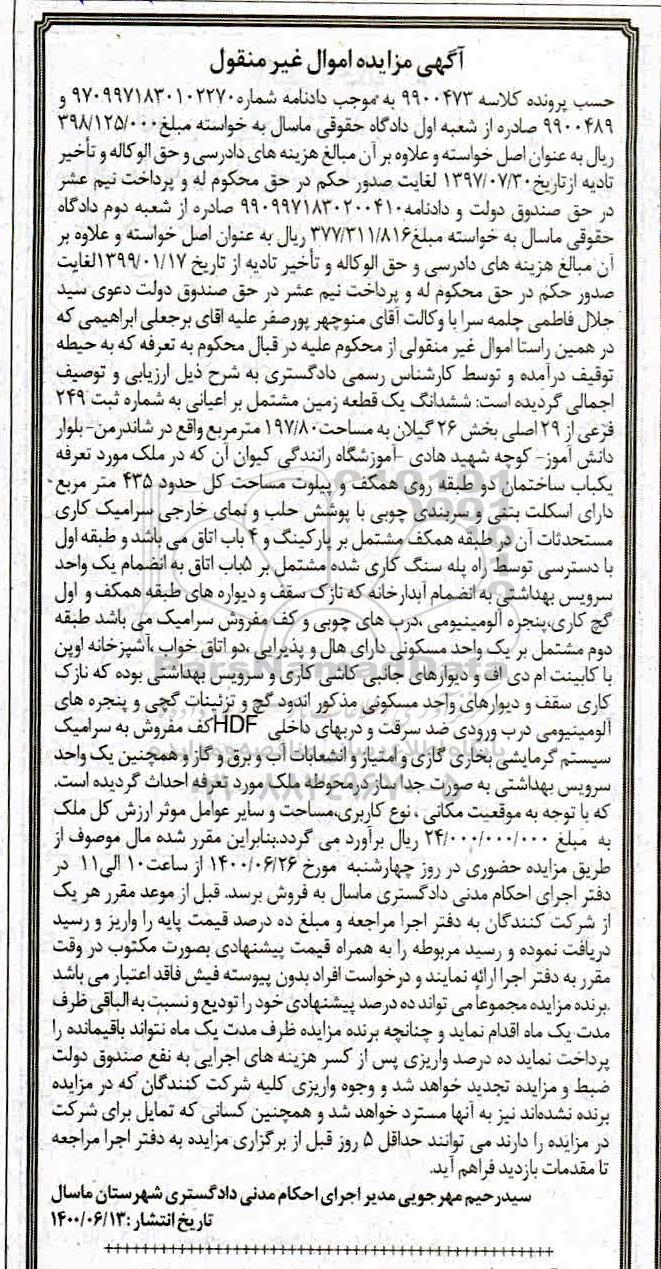 آگهی مزایده اموال غیر منقول
حسب پرونده کلاسه ۹۹۰۰۴۷۳ به موجب دادنامه شماره۹۷۰۹۹۷۱۸۳۰۱۰۲۲۷۰ و
۹۹۰۰۴۸۹ صادره از شعبه اول دادگاه حقوقی ماسال به خواسته مبلغ۳۹۸/۱۲۵/۰۰۰
ریال به عنوان اصل خواسته و علاوه بر آن مبالغ هزینه های دادرسی و حق الوکاله و تأخیر
تادیه از تاریخ۱۳۹۷/۰۷/۳۰ لغایت صدور حکم در حق محکوم له و پرداخت نیم عشر
در حق صندوق دولت و دادنامه۹۹۰۹۹۷۱۸۳۰۲۰۰۴۱۰ صادره از شعبه دوم دادگاه
حقوقی ماسال به خواسته مبلغ۳۷۷/۳۱۱/۸۱۶ ریال به عنوان اصل خواسته و علاوه بر
آن مبالغ هزینه های دادرسی و حق الوکاله و تأخیر تادیه از تاریخ ۱۳۹۹/۰۱/۱۷لغایت
صدور حکم در حق محکوم له و پرداخت نیم عشر در حق صندوق دولت دعوی سید
جلال فاطمی چلمه سرا با وکالت آقای منوچهر پورصفر علیه اقای برجعلی ابراهیمی که
در همین راستا اموال غیر منقولی از محکوم علیه در قبال محکوم به تعرفه که به حیطه
توقیف درآمده و توسط کارشناس رسمی دادگستری به شرح ذیل ارزیابی و توصیف
اجمالی گردیده است: ششدانگ یک قطعه زمین مشتمل بر اعیانی به شماره ثبت ۲۴۹
فرعی از ۲۹ اصلی بخش ۲۶ گیلان به مساحت۱۹۷/۸۰ مترمربع واقع در شاندرمن- بلوار
دانش آموز- کوچه شهید هادی -آموزشگاه رانندگی کیوان آن که در ملک مورد تعرفه
یکباب ساختمان دو طبقه روی همکف و پیلوت مساحت کل حدود ۴۳۵ متر مربع
دارای اسکلت بتنی و سربندی چوبی با پوشش حلب و نمای خارجی سرامیک کاری
مستحدثات آن در طبقه همکف مشتمل بر پارکینگ و ۴ باب اتاق می باشد و طبقه اول
با دسترسی توسط راه پله سنگ کاری شده مشتمل بر ۵باب اتاق به انضمام یک واحد
سرویس بهداشتی به انضمام آبدارخانه که نازک سقف و دیواره های طبقه همکف و اول
گچ کاری،پنجره الومینیومی ،درب های چوبی و کف مفروش سرامیک می باشد طبقه
دوم مشتمل بر یک واحد مسکونی دارای هال و پذیرایی ،دو اتاق خواب ،آشپزخانه اوپن
با کابینت ام دی اف و دیوارهای جانبی کاشی کاری و سرویس بهداشتی بوده که نازک
کاری سقف و دیوارهای واحد مسکونی مذکور اندود گچ و تزئینات گچی و پنجره های
آلومینیومی درب ورودی ضد سرقت و دربهای داخلی HDFکف مفروش به سرامیک
سیستم گرمایشی بخاری گازی و امتیاز و انشعابات آب و برق و گاز و همچنین یک واحد
سرویس بهداشتی به صورت جدا ساز درمحوطه ملک مورد تعرفه احداث گردیده است.
که با توجه به موقعیت مکانی ، نوع کاربری،مساحت و سایر عوامل موثر ارزش کل ملک
به مبلغ ۲۴/۰۰۰/۰۰۰/۰۰۰ ریال برآورد می گردد.بنابراین مقرر شده مال موصوف از
طریق مزایده حضوری در روز چهارشنبه مورخ ۱۴۰۰/۰۶/۲۶ از ساعت۱۰ الی۱۱ در
دفتر اجرای احکام مدنی دادگستری ماسال به فروش برسد. قبل از موعد مقرر هر یک
از شرکت کنندگان به دفتر اجرا مراجعه و مبلغ ده درصد قیمت پایه را واریز و رسید
دریافت نموده و رسید مربوطه را به همراه قیمت پیشنهادی بصورت مکتوب در وقت
مقرر به دفتر اجرا ارائه نمایند و درخواست افراد بدون پیوسته فیش فاقد اعتبار می باشد
.برنده مزایده مجموعاً می تواند ده درصد پیشنهادی خود را تودیع و نسبت به الباقی ظرف
مدت یک ماه اقدام نماید و چنانچه برنده مزایده ظرف مدت یک ماه نتواند باقیمانده را
پرداخت نماید ده درصد واریزی پس از کسر هزینه های اجرایی به نفع صندوق دولت
ضبط و مزایده تجدید خواهد شد و وجوه واریزی کلیه شرکت کنندگان که در مزایده
برنده نشده‌اند نیز به آنها مسترد خواهد شد و همچنین کسانی که تمایل برای شرکت
در مزایده را دارند می توانند حداقل ۵ روز قبل از برگزاری مزایده به دفتر اجرا مراجعه
تا مقدمات بازدید فراهم آید.
سیدرحیم مهرجویی مدیر اجرای احکام مدنی دادگستری شهرستان ماسال
تاریخ انتشار :۱۴۰۰/۰۶/۱۳